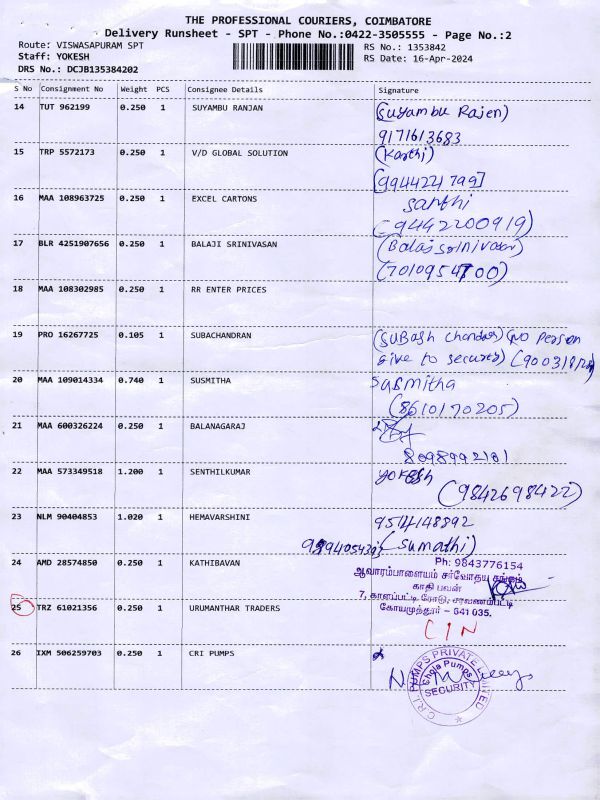 THE PROFESSIONAL COURIERS, COIMBATORE
Delivery Runsheet - SPT - Phone No.:0422-3505555 - Page No.:2
Route: VISWASAPURAM SPT
Staff: YOKESH
DRS No.: DCJB135384202
RS No.: 1353842
RS Date: 16-Apr-2024
S No Consignment No Weight PCS Consignee Details Signature
14 TUT 962199 0.250 1 SUYAMBU RANJAN (Suyambu Rajen)
9171613683
15 TRP 5572173 0.250 1 V/D GLOBAL SOLUTION (Karthi)
[9944221799]
16 MAA 108963725 0.250 1 EXCEL CARTONS Santhi
(9442200919)
17 BLR 4251907656 0.250 1 BALAJI SRINIVASAN (Balaj srinivasan)
(7010954700)
18 MAA 108302985 0.250 1 RR ENTER PRICES
19 PRO 16267725 0.105 1 SUBACHANDRAN (SUBash chander) (NO Person
give to secured)
20 MAA 109014334 0.740 1 SUSMITHA Susmitha
(8610170205)
21 MAA 600326224 0.250 1 BALANAGARAJ
8098992181
22 MAA 573349518 1.200 1 SENTHILKUMAR YOKESh
(9842698422)
23 NLM 90404853 1.020 1 HEMAVARSHINI 9514148892
(Sumathi)
24 AMD 28574850 0.250 1 KATHIBAVAN Ph: 9843776154
ஆவாரம்பாளையம் சர்வோதய சங்கம்
காதி பவன்
7, காளப்பட்டி ரோடு, சரவணம்பட்டி
கோயமுத்தூர் – 641 035.
25 TRZ 61021356 0.250 1 URUMANTHAR TRADERS CIN
26 IXM 506259703 0.250 1 CRI PUMPS
C.R.I. PUMPS PRIVATE LIMITED
Chola Pumps
SECURITY